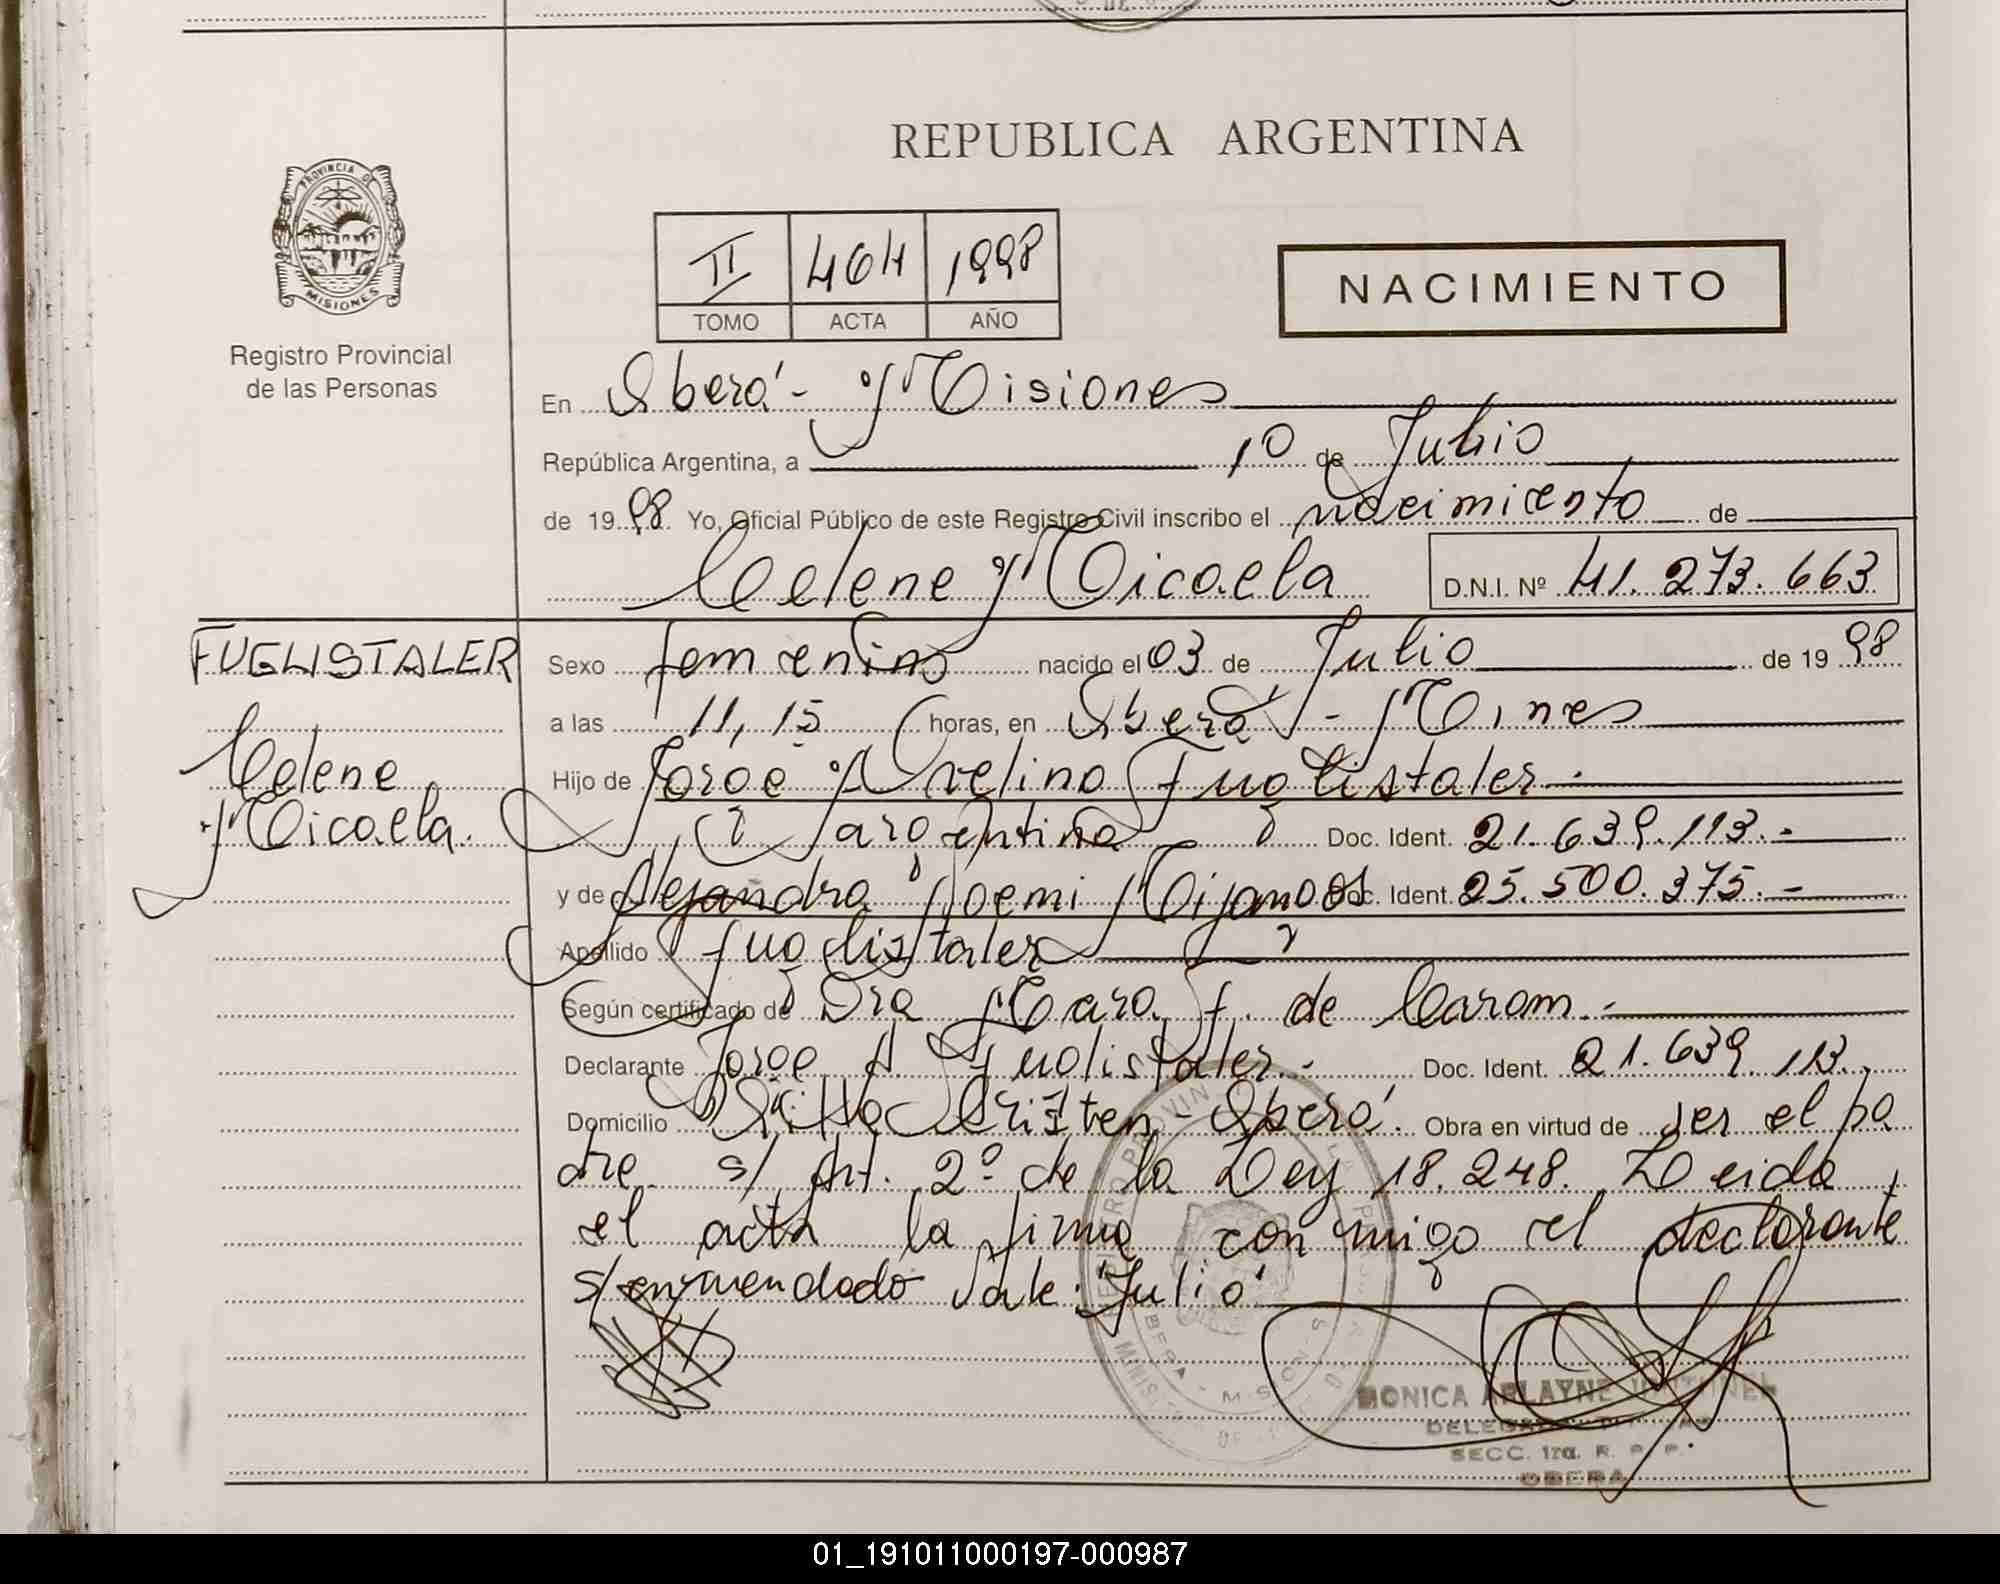 REPUBLICA ARGENTINA
PROVINCIA DE
MISIONES
Registro Provincial
de las Personas
II 464 1998
TOMO ACTA AÑO
NACIMIENTO
En Oberá - Misiones
República Argentina, a 10 de Julio
de 1998 Yo, Oficial Público de este Registro Civil inscribo el nacimiento de
Celene Micaela D.N.I. Nº 41.273.663
FUGLISTALER
Celene
Micaela.
Sexo femenino nacido el 03 de Julio de 1998
a las 11,15 horas, en Oberá - Mnes
Hijo de Jorge Avelino Fuglistaler.-
argentina Doc. Ident. 21.639.113.-
y de Alejandra Noemi Doc. Ident. 25.500.375.-
Apellido Fuglistaler
Según certificado de Dra Mara F. de Carom.-
Declarante Jorge A. Fuglistaler.- Doc. Ident. 21.639.113.
Domicilio Villa Kristen - Oberá. Obra en virtud de ser el pa
dre s/ Art. 2º de la Ley 18.248. Leida
el acta la firma conmigo el declarante
s/enmendado Vale: "Julio"
MONICA ARLAYNE
DELEGADA TITULAR
SECC. 1ra. R. P. P.
OBERA
01_191011000197-000987